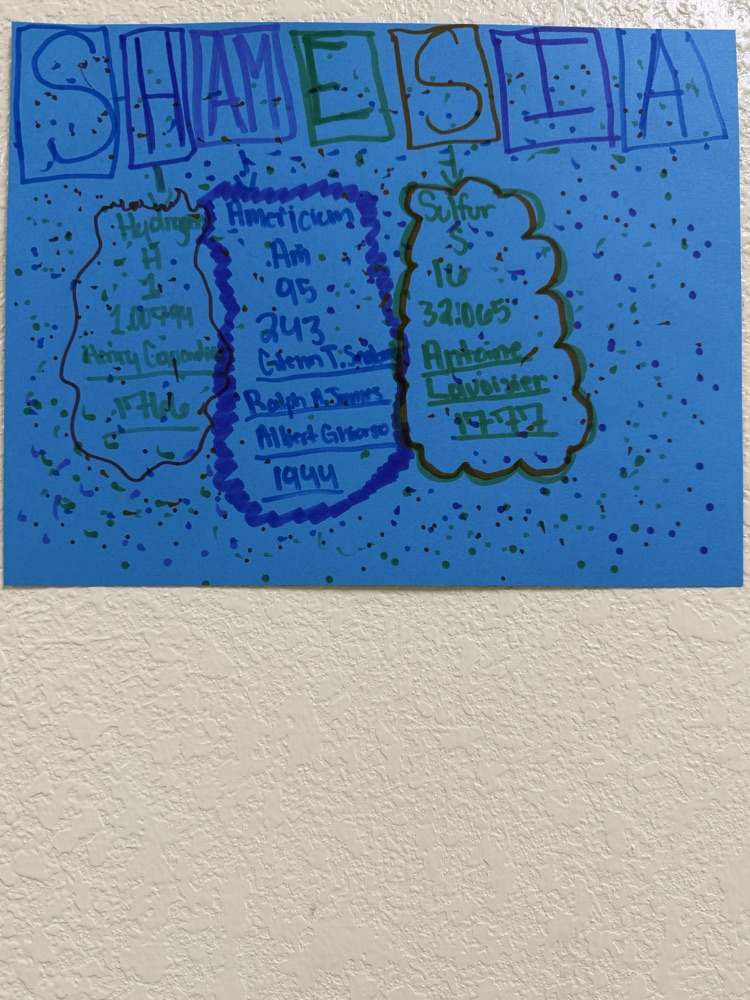 S H AM E S I A
Hydrogen
H
1
1.00794
Henry
1766
Americium
Am
95
243
Glenn T.
Ralph A. James
Albert Ghiorso
1944
Sulfur
S
16
32.065
Antoine
Lavoisier
1777